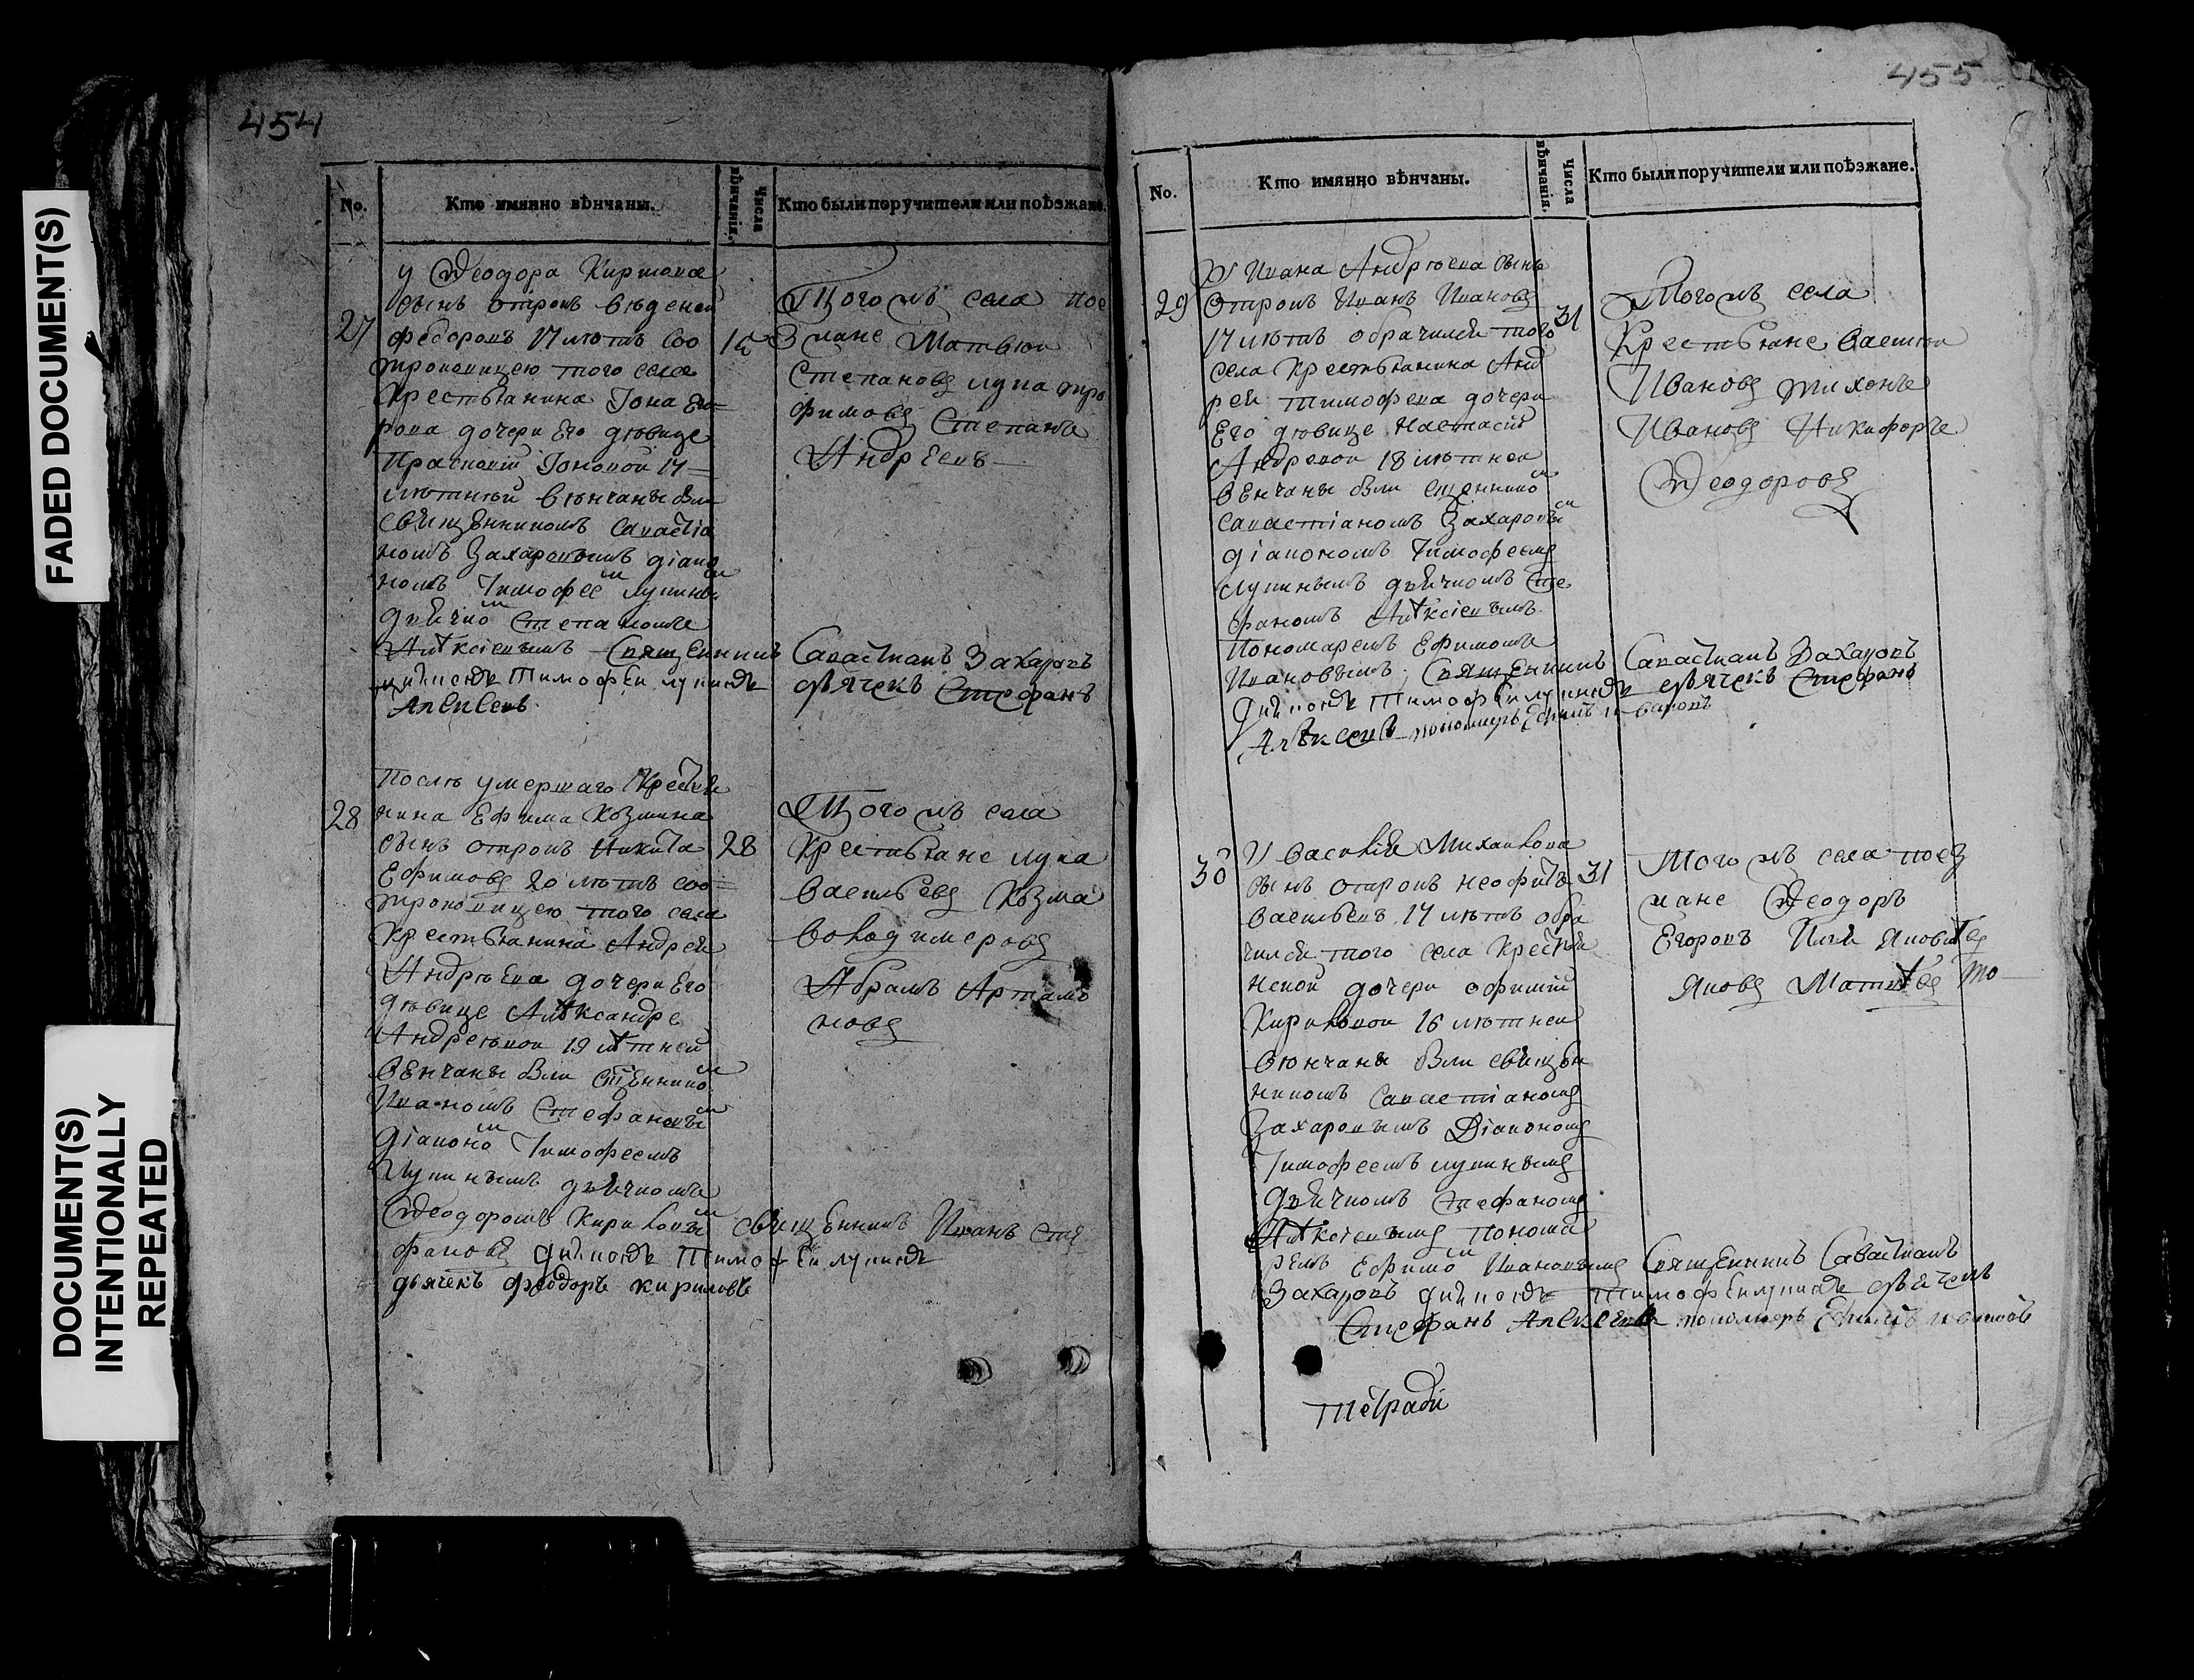 FADED DOCUMENT(S)
DOCUMENT(S)
INTENTIONALLY
REPEATED
454
No.
Кто имянно вѣнчаны.
Числа
вѣнчанія.
Кто были поручители или поѣзжане.
27
у Ѳеодора
сынъ отрокъ
Федоровъ 17 лѣтъ соо
троковицею того села
Крестьянина Іона Его=
рова дочери Его дѣвице
Прасковіи Іоновой 17—
лѣтнѣй вѣнчаны бли
священникомъ Савастіа
номъ Захаровымъ діако
номъ Тимофеем лупиным
дьячком Степаномъ
Алѣксіевымъ Священникъ Савастианъ Захаровъ
Тимофеи лупинъ дьячекъ Стефанъ
Алексеевъ
15
Того жъ села пое
зжане Матвѣи
Степановъ лука тро
фимовъ Степанъ
Андреевъ—
28
Послѣ умершаго Крестья
нина Ефима Козмина
сынъ отрокъ Никита
Ефимовъ 20 лѣтъ соо=
троковицею того села
крестьянина Андрея
Андрѣева дочери Его
дѣвице Алѣксандре
Андреевои 19 лѣтнеи
вѣнчаны бли сщенником
Иваномъ Стефановым
діаконом Тимофеемъ
Лупинымъ дьячкомъ
Ѳеодоромъ Кириловым священникъ Иванъ Сте
фановъ Тимофеи лупинъ
дьячекъ Феодоръ кириловъ
28
Того жъ села
Крестьяне лука
Васильевъ Козма
Володимеровъ
Абрамъ Артамо
новъ
455
No.
Кто имянно вѣнчаны.
Числа
вѣнчанія.
Кто были поручители или поѣзжане.
29
У Ивана Андрѣева сынъ
Отрокъ Иванъ Ивановъ
17 лѣтъ обрачился того
села Крестьянина Анд
рея тимофеева дочери
Его дѣвице Настасіи
Андреевои 18 лѣтнеи
вѣнчаны бли сщенником
Савастіаномъ Захаровым
діакономъ Тимофеемъ
лупинымъ дьячкомъ Сте
фаномъ Алѣксіевымъ
Пономаремъ Ефимомъ
Ивановымъ, Священникъ Савастианъ Захаровъ
Тимофеи лупинъ дьячекъ Стефанъ
Алѣксеевъ пономарь Ефимъ ивановъ
31
Того жъ села
Крестьяне Васили
Ивановъ тихонъ
Ивановъ Никифоръ
Ѳеодоровъ
30
У Василія Михаилова
сынъ отрокъ неофитъ
Васильевъ 17 лѣтъ обра
чился того села Крестья
нской дочери офиміи
Кириловои 16 лѣтнеи
вѣнчаны бли священ
никомъ Савастіаномъ
Захаровымъ Діакономъ
Тимофеемъ лупинымъ
дьячкомъ Стефаномъ
Алѣксіевымъ понома
ремъ Ефимом Ивановымъ Священникъ Савастианъ
Захаровъ Тимофеи лупинъ дьячекъ
Стефанъ Алексеевъ пономарь Ефимъ ивановъ
31
Того жъ села поез
жане Ѳеодоръ
Егоровъ Илья Яковлевъ
Яковъ Матвѣевъ то—
тетради